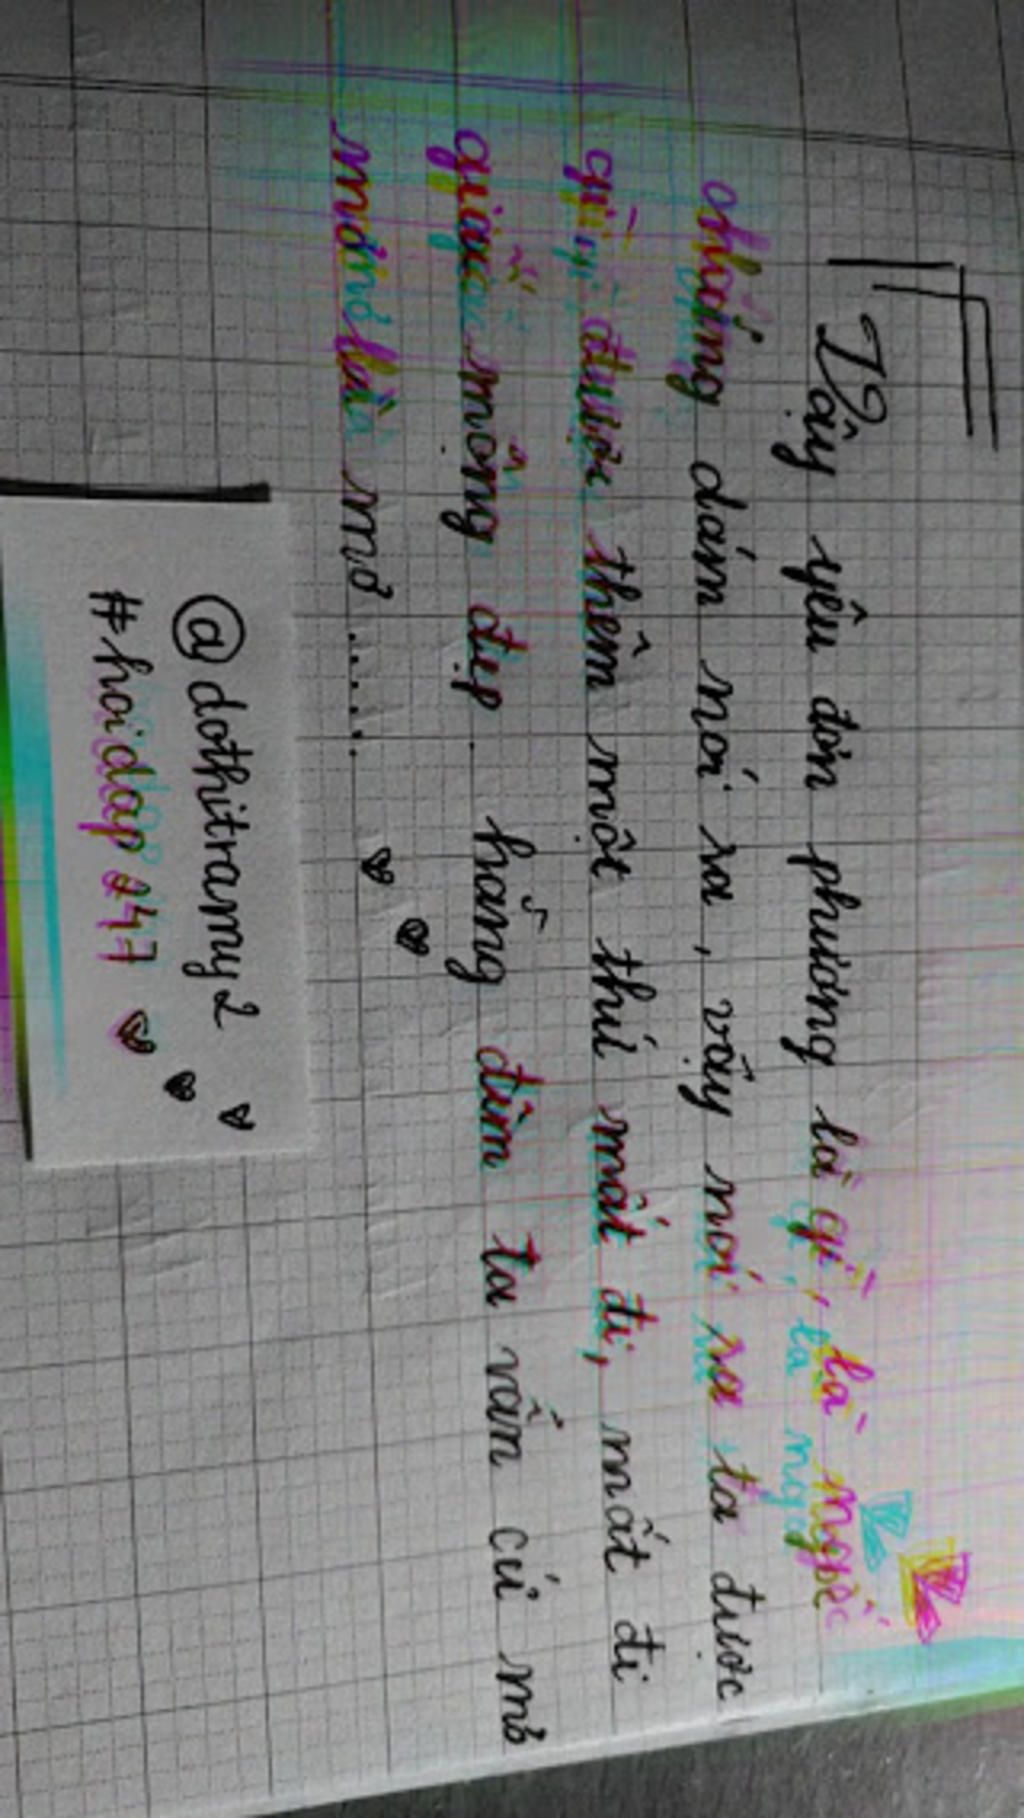 Vậy yêu đơn phương là gì, là ngốc
chẳng dám nói ra, vậy nói ra ta được
gì, được thêm một thứ mất đi, mất đi
giấc mộng đẹp hằng đêm ta vẫn cứ mơ
mộng là mơ......
@dothitramy2
#hoidap247